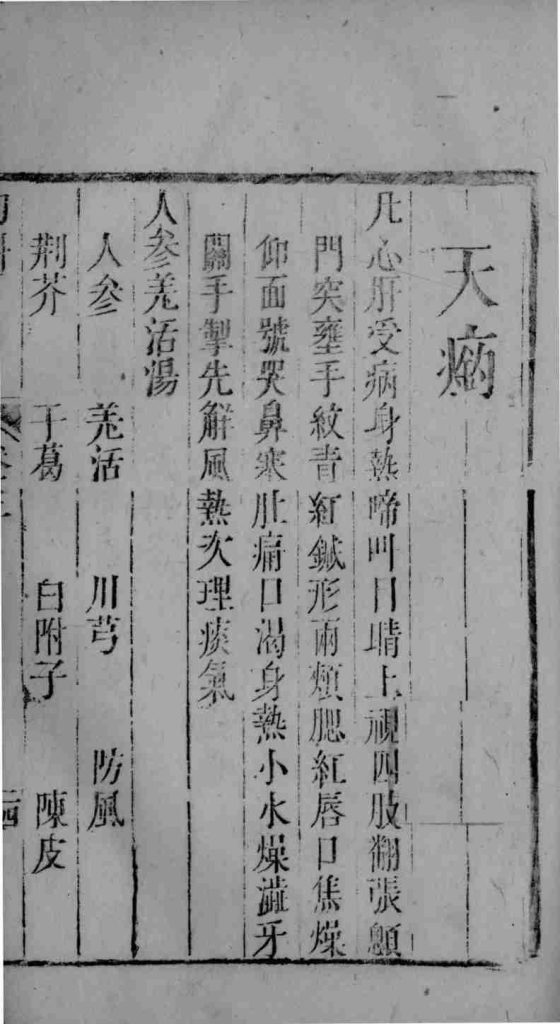 天痫
凡心肝受病身熱啼叫目睛上視四肢翻張顖
門突壅手紋青紅鍼形兩頰腮紅唇口焦燥
仰面號哭鼻寒肚痛口渴身熱小水燥澁牙
關手掣先解風熱次理痰氣
人參羌活湯
人參 羌活 川芎 防風
荆芥 干葛 白附子 陳皮